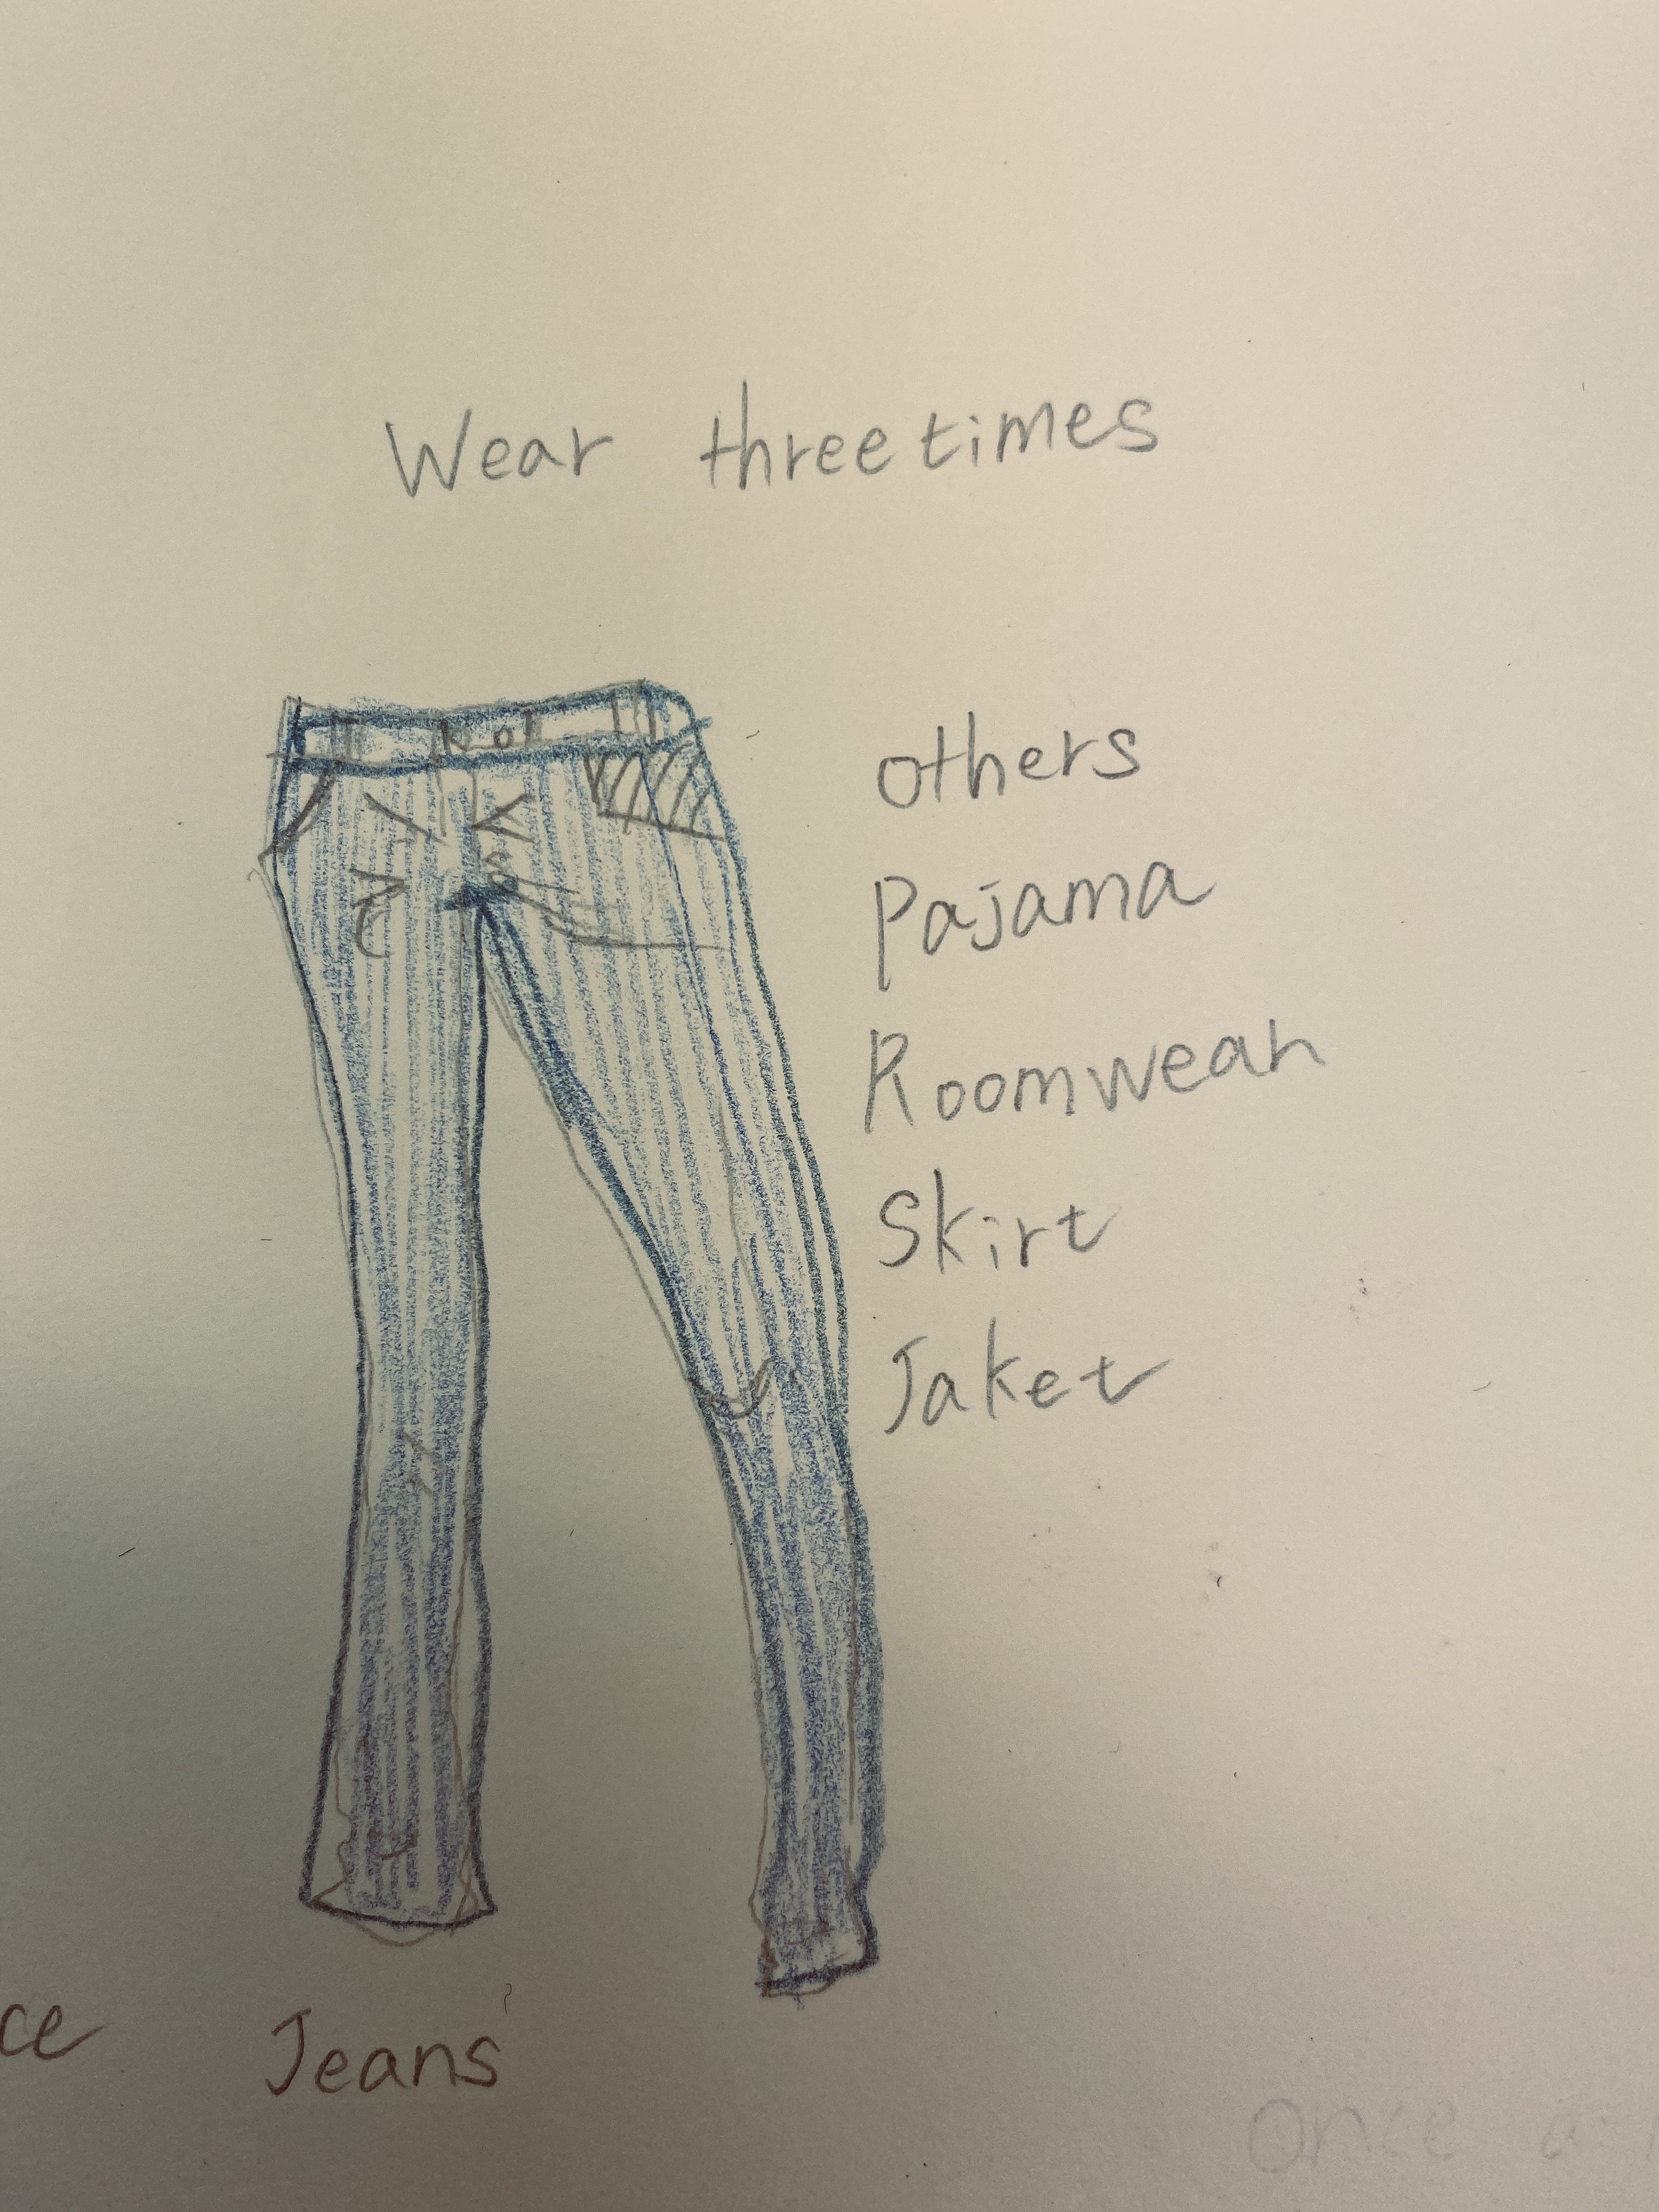 Wear three times
others
Pajama
Roomwear
Skirt
Jaket
ce
Jeans
Once a